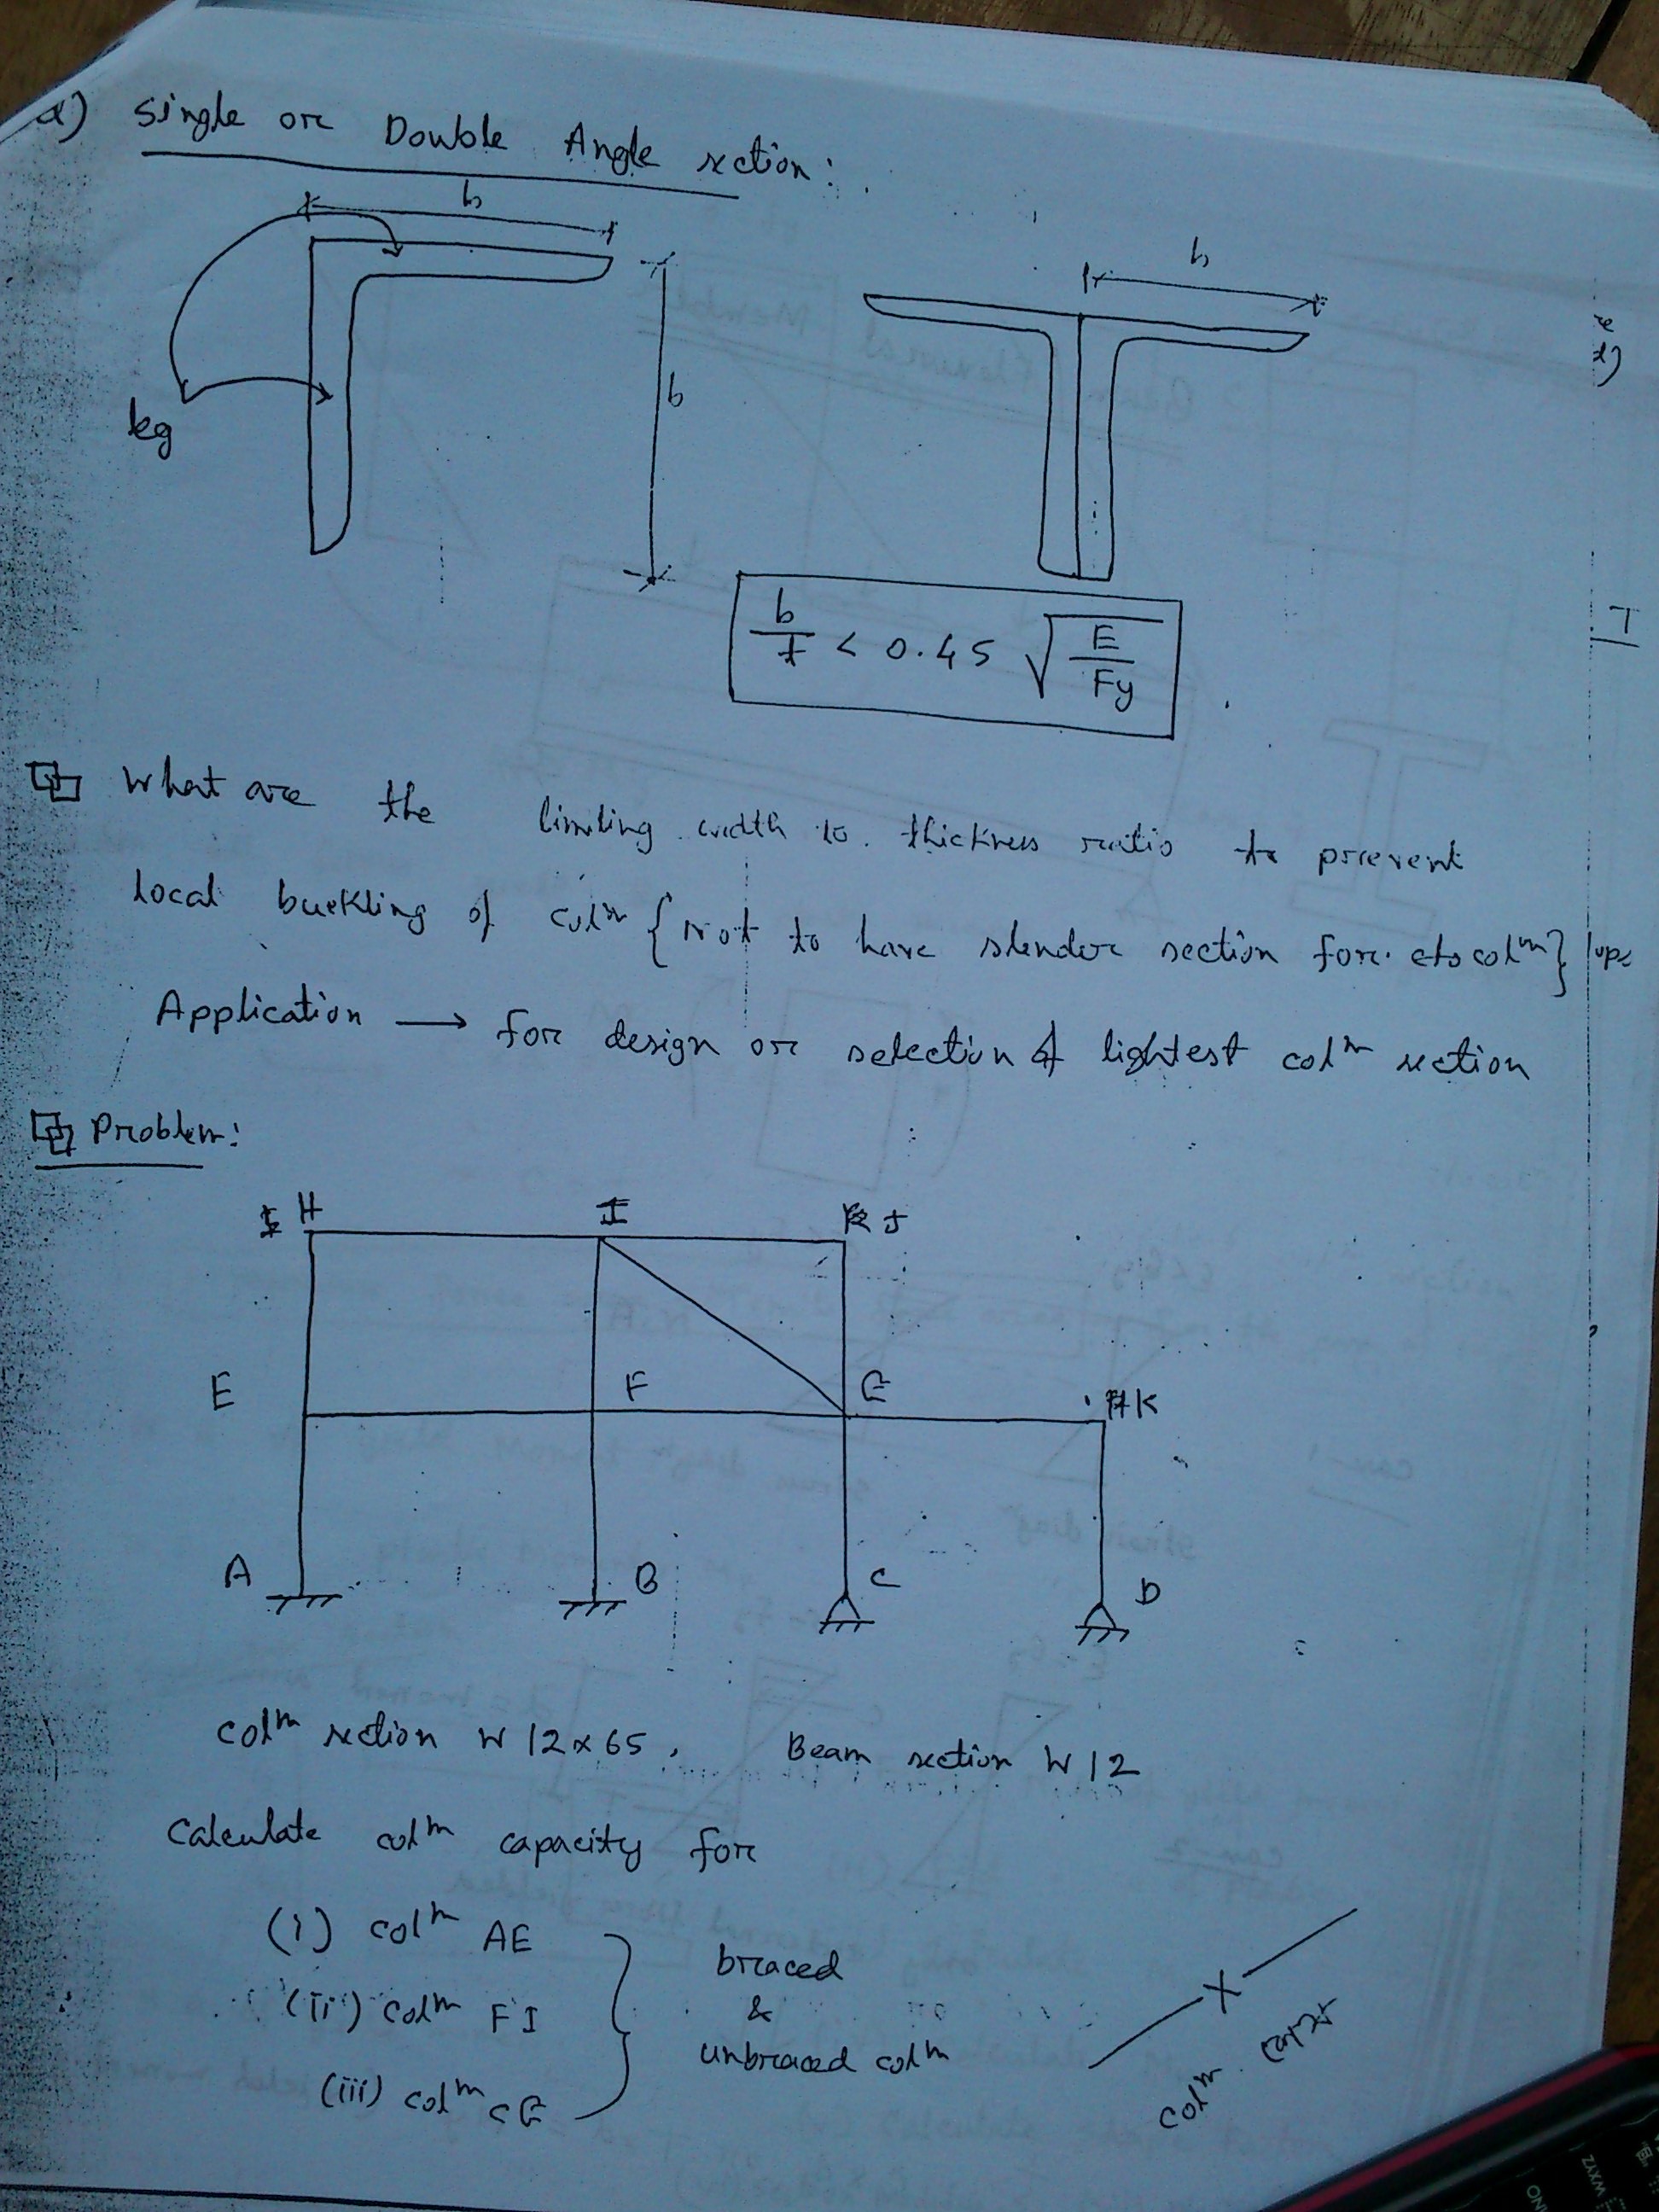 d) Single or Double Angle section:
b
b
b
leg
b/t < 0.45 √(E/Fy)
What are the limiting width to thickness ratio to prevent
local buckling of colm {Not to have slender section for colm}
Application → for design or selection of lightest colm section
Problem:
H I J
E F G K
A B C D
colm section W 12x65, Beam section W12
Calculate colm capacity for
(i) colm AE
(ii) colm FI
(iii) colm CG
braced
&
unbraced colm
colm